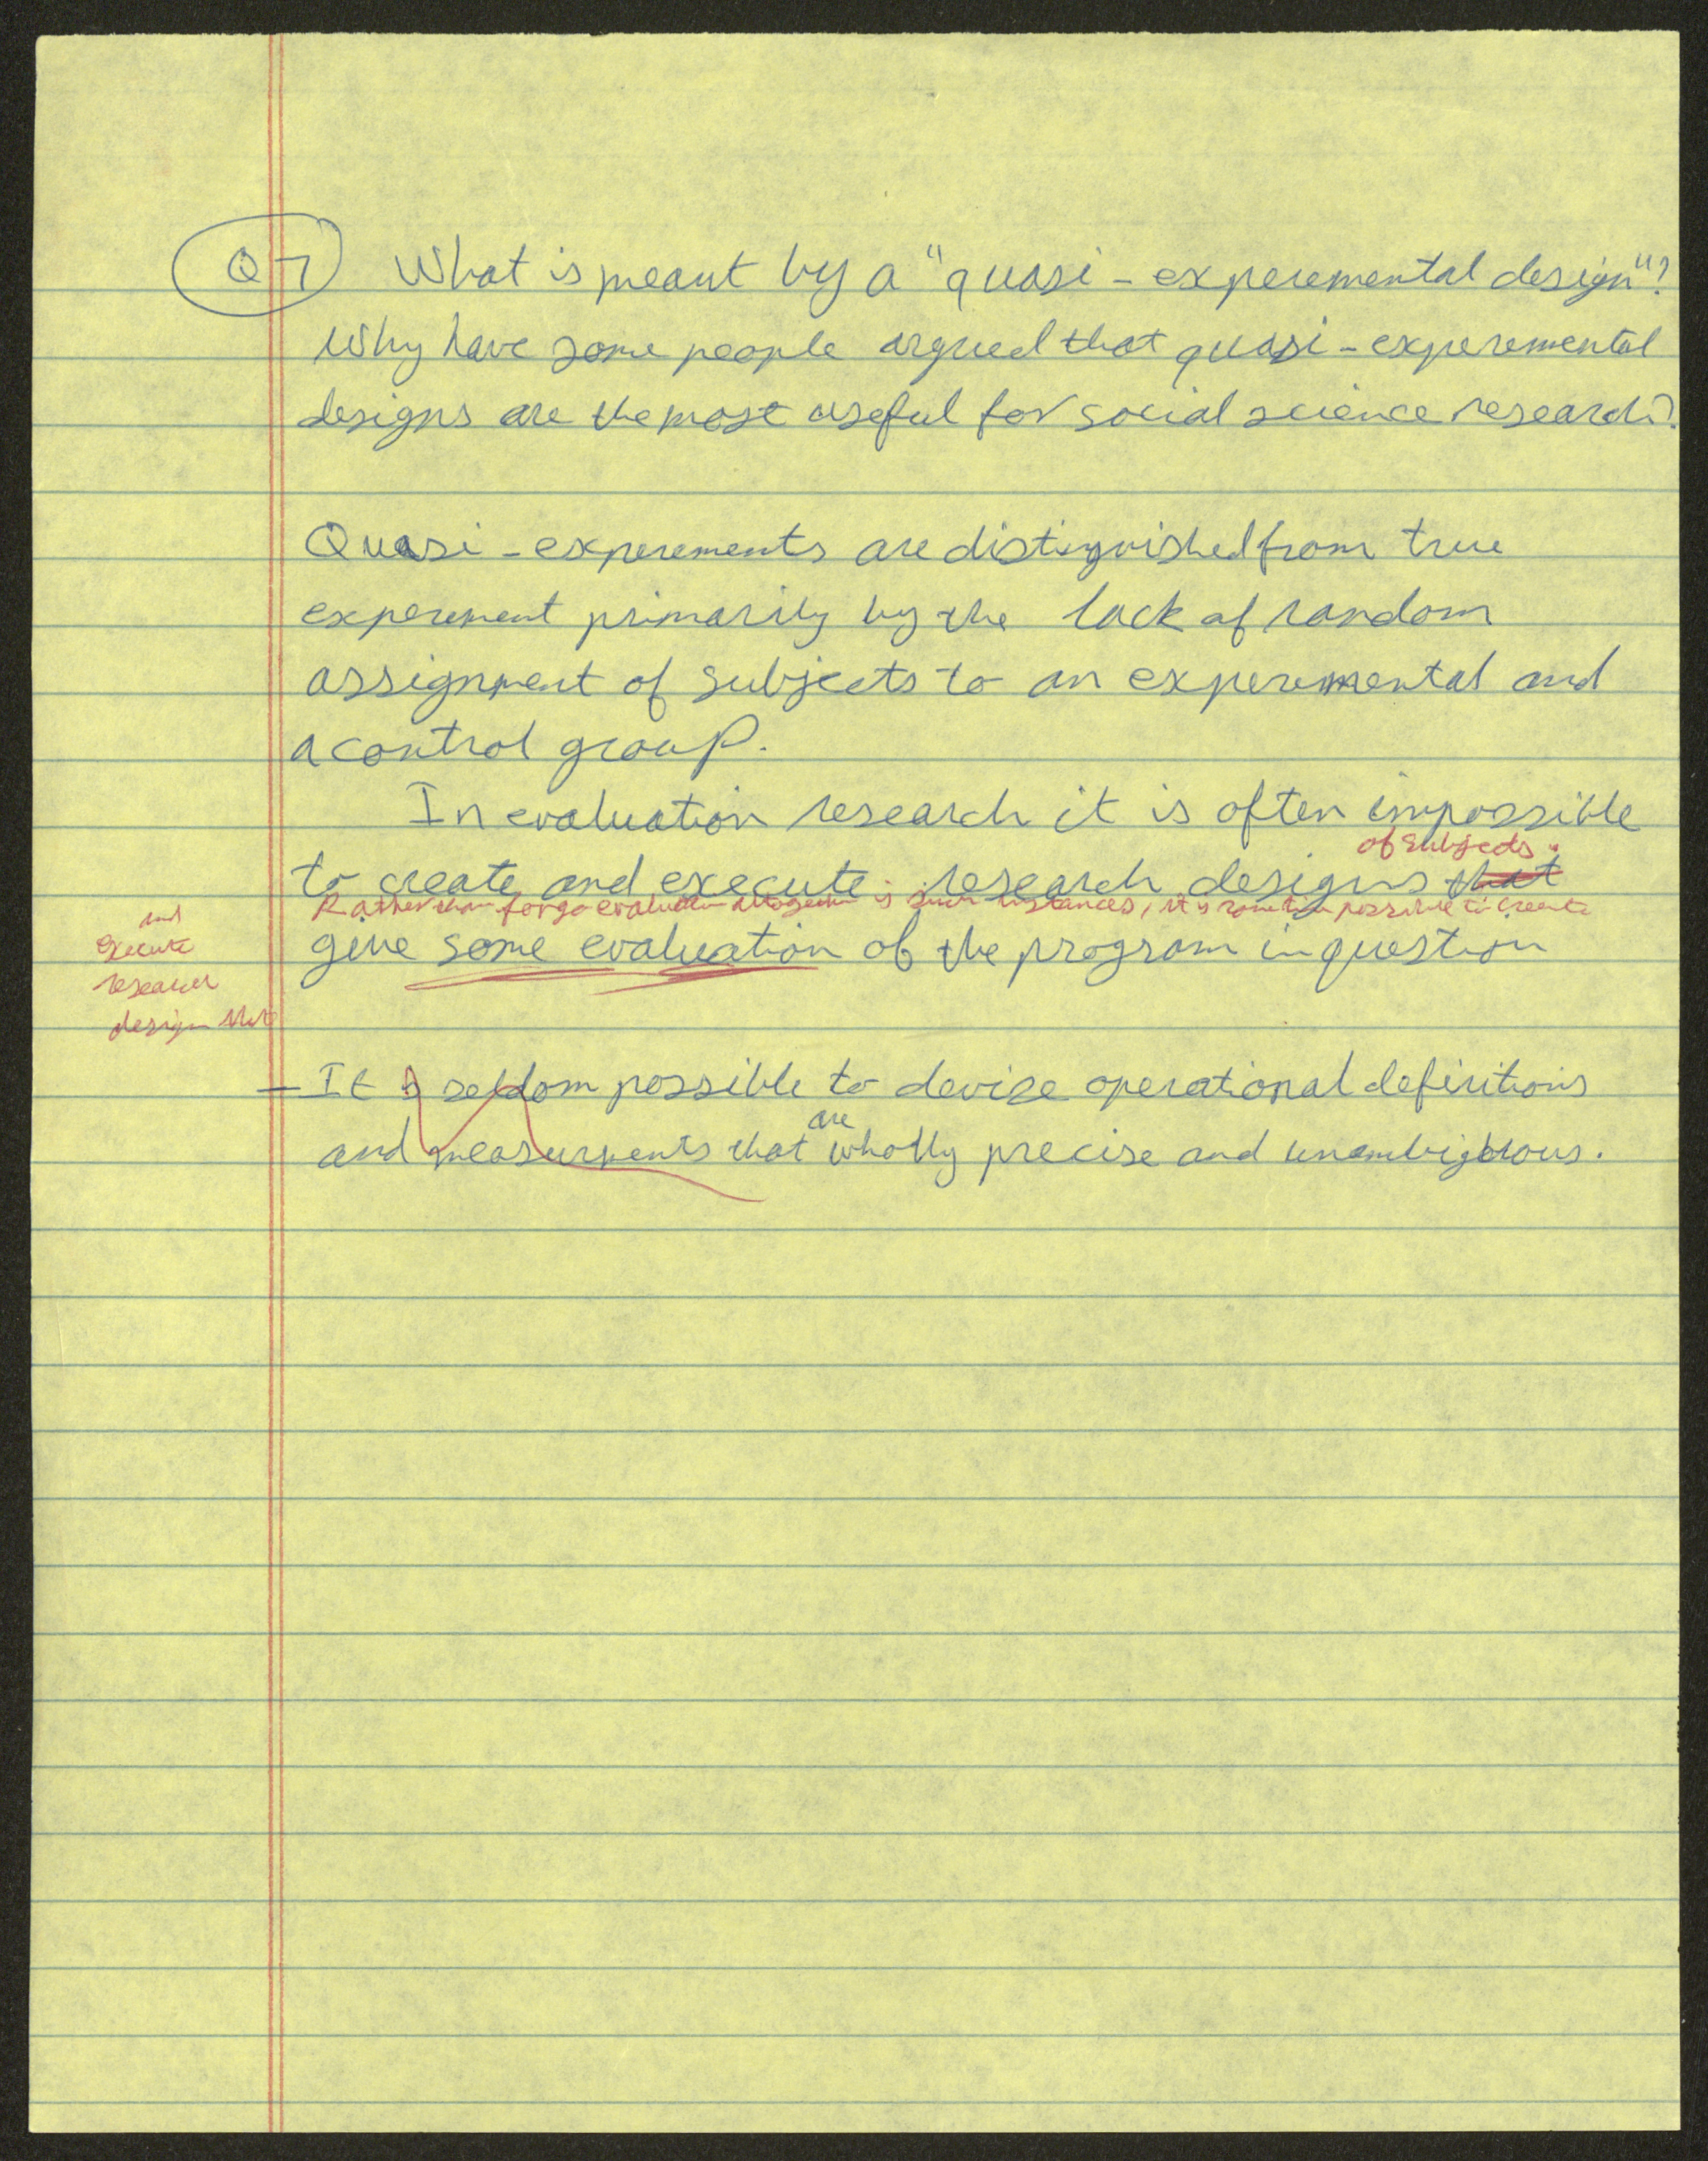 Q7 What is meant by a "quasi-experemental design"?
Why have some people argued that quasi-experemental
designs are the most useful for social science research?
Quasi-experements are distinguished from true
experement primarily by the lack of random
assignment of subjects to an experemental and
a control group.
In evaluation research it is often impossible
of subjects.
to create and execute research designs that
Rather than forgo evaluation altogether is such instances, it is sometime possible to create
and
execute
research
design that
give some evaluation of the program in question
- It is seldom possible to devise operational definitions
are
and measurments that wholly precise and unambigious.